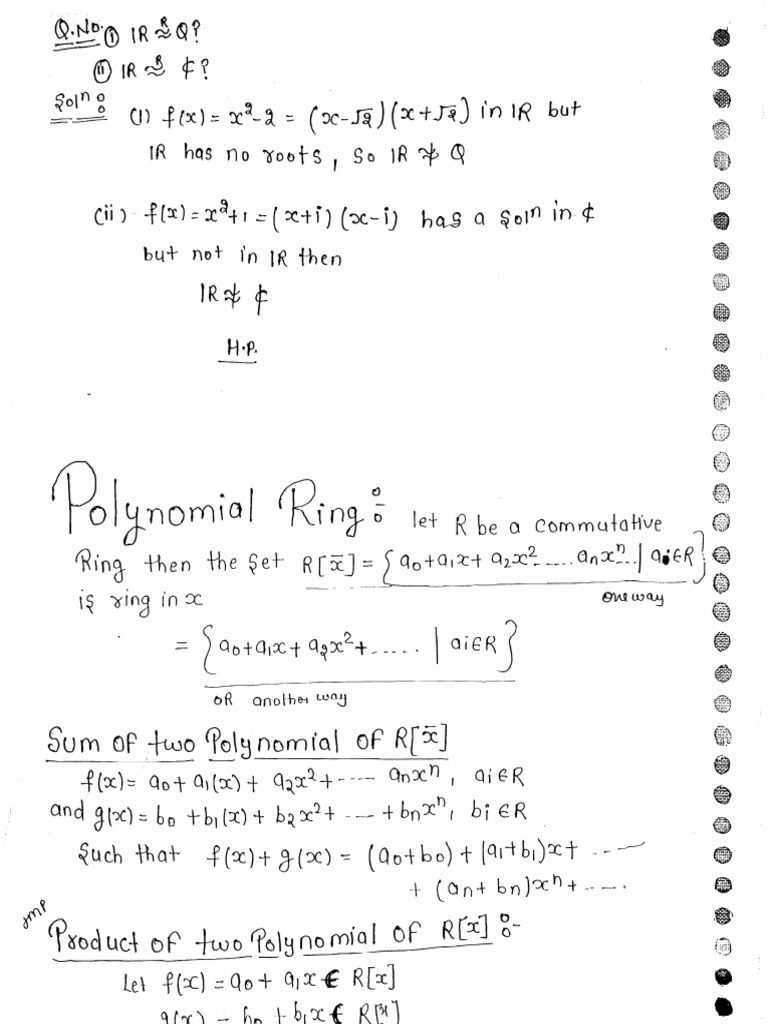 Q.No. (i) IR ≈ᴿ Q?
(ii) IR ≈ᴿ ₵?
Solⁿ: (i) f(x) = x²-2 = (x-√2)(x+√2) in IR but
IR has no roots, so IR ≉ Q
(ii) f(x) = x²+1 = (x+i)(x-i) has a solⁿ in ₵
but not in IR then
IR ≉ ₵
H.P.
Polynomial Ring: let R be a commutative
Ring then the set R[x̄] = {a₀+a₁x+a₂x².....aₙxⁿ...| aᵢ∈R}
is ring in x
one way
= {a₀+a₁x+a₂x²+......| aᵢ∈R}
OR another way
Sum of two Polynomial of R[x̄]
f(x) = a₀+a₁(x)+a₂x²+---- aₙxⁿ, aᵢ∈R
and g(x) = b₀+b₁(x)+b₂x²+---+bₙxⁿ, bᵢ∈R
Such that f(x)+g(x) = (a₀+b₀)+(a₁+b₁)x+-----
+(aₙ+bₙ)xⁿ+.....
Imp
Product of two Polynomial of R[x̄] :-
Let f(x) = a₀+a₁x ∈ R[x]
g(x) = b₀+b₁x ∈ R[x]